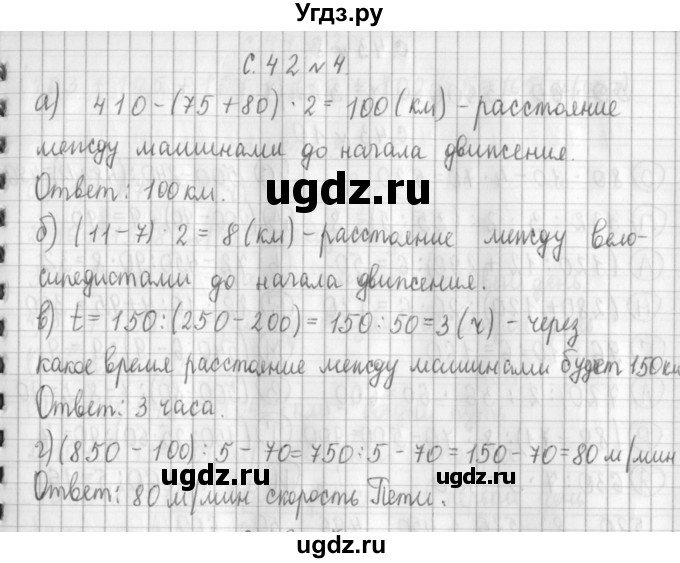 Угдз.ру
С. 42 № 4
а) 410-(75+80)·2=100(км)-расстояние
между машинами до начала движения.
Ответ: 100 км.
ugdz.ru
б) (11-7)·2=8(км)-расстояние между вело-
сипедистами до начала движения.
в) t=150:(250-200)=150:50=3(ч)-через
какое время расстояние между машинами будет 150км
Ответ: 3 часа.
ugdz.ru
г)(850-100):5-70=750:5-70=150-70=80 м/мин
ugdz.ru
ugdz.ru
Ответ: 80 м/мин скорость Пети.
ugdz.ru